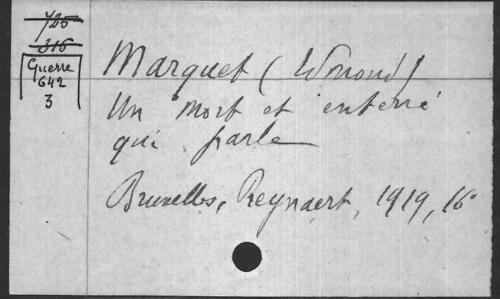 725
316
Guerre
642
3
Marquet (Edmond)
Un mort et enterré
qui parle
Bruxelles, Reynaert, 1919, 16°